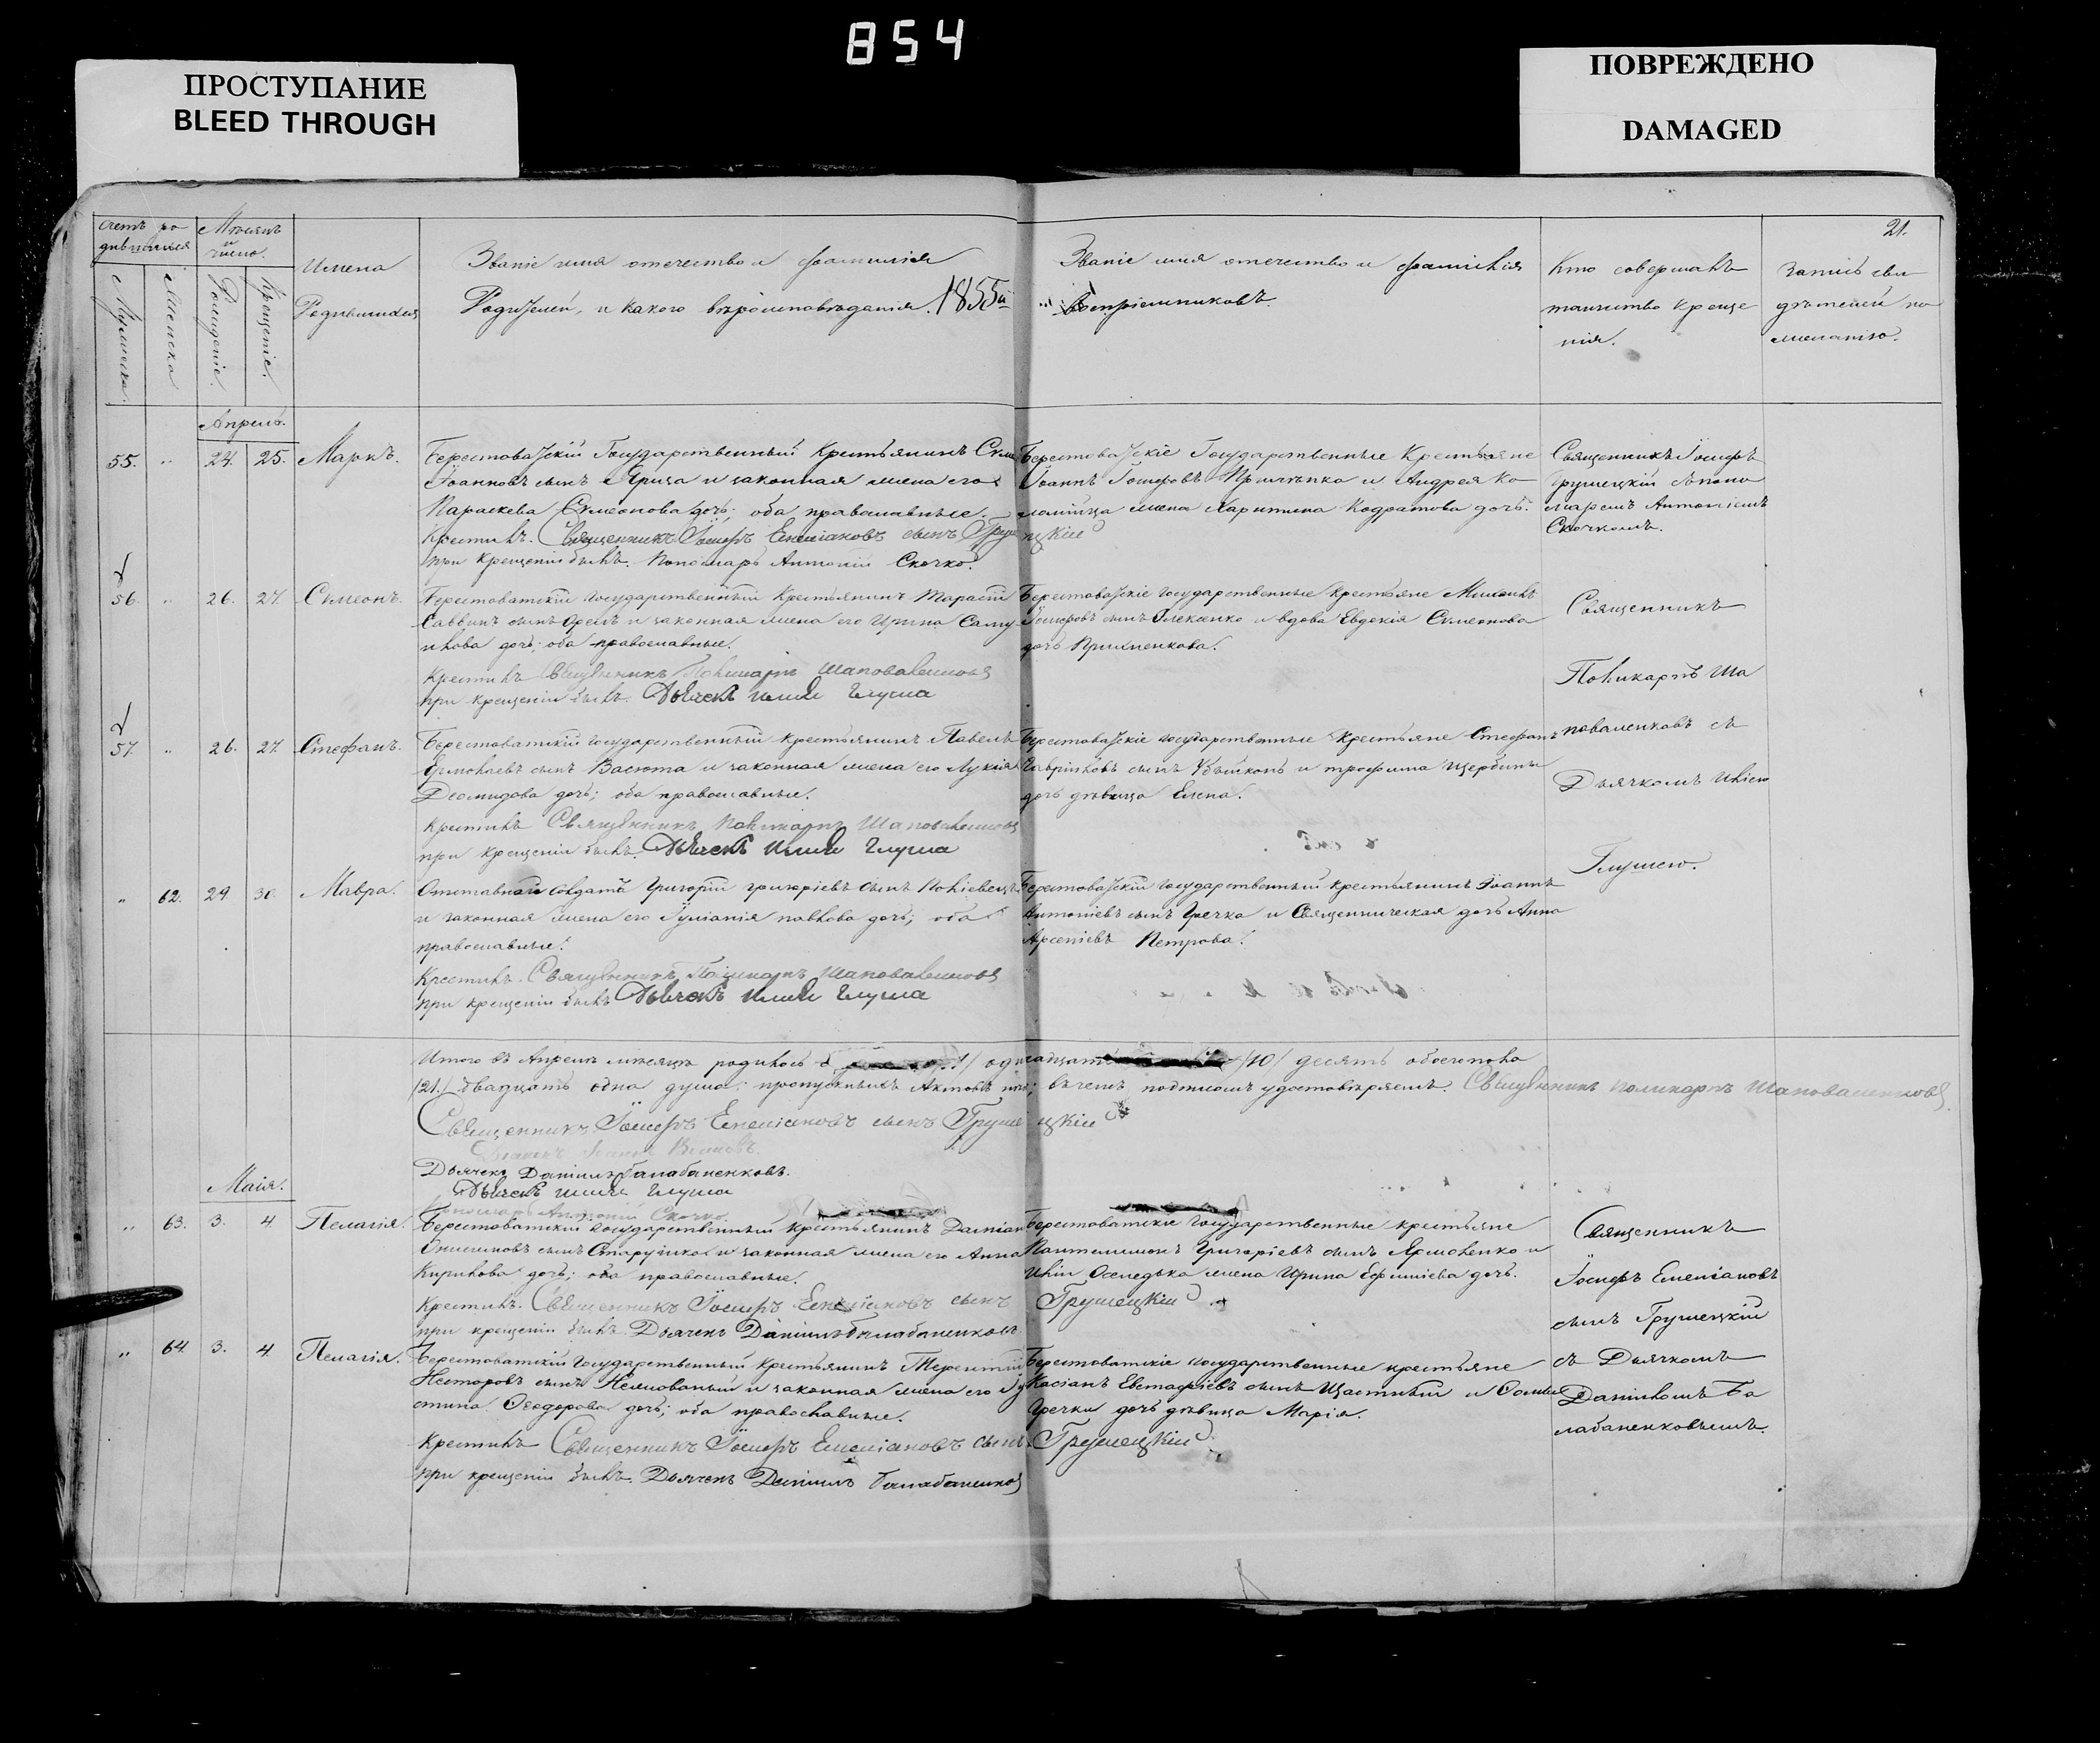 854
ПРОСТУПАНИЕ
BLEED THROUGH
ПОВРЕЖДЕНО
DAMAGED
21.
Счетъ ро
дившихся
Мѣсяцъ
и
число.
Мужеска
Женска
Рожденіе.
Крещеніе.
Имена
Родившихся
Званіе имя отечество и фамилія
Родителей, и какого вѣроисповѣданія. 1855й
Званіе имя отечество и фамилія
Воспріемниковъ.
Кто совершалъ
таинство Креще
нія.
Запись сви
дѣтелей по
желанію.
Апрель.
55. 24. 25. Маркъ.
Берестоватскій Государственный Крестьянинъ
Іоанновъ сынъ Ярица и законная жена его
Параскева Сѵмеонова дочь; оба православные.
Крестилъ. Священникъ Іосифъ Емеліановъ сынъ Грушецкій
при крещеніи былъ. Пономарь Антоній Скочко.
Берестоватскіе Государственные Крестьяне
Іоаннъ Іосифовъ и Андрея Ко
ломійца жена Харитина Кодратова дочь.
Священникъ Іосифъ
Грушецкій съ поно
маремъ Антоніемъ
Скочкомъ.
56. 26. 27. Сѵмеонъ.
Берестоватскій государственный Крестьянинъ Тарасій
Саввинъ сынъ и законная жена его Ирина Саму
илова дочь; оба православные.
Крестилъ Священникъ Поликарпъ Шаповаленковъ
при крещеніи былъ. Дьячекъ Илія Глуша
Берестоватскіе государственные крестьяне Михаилъ
Іосифовъ сынъ Олексенко и вдова Евдокія Сѵмеонова
дочь
Священникъ
Поликарпъ Ша
поваленковъ съ
Дьячкомъ Иліею
Глушею.
57. 26. 27. Стефанъ.
Берестоватскій государственный крестьянинъ Павелъ
Ермолаевъ сынъ Васюта и законная жена его Лукія
Діомидова дочь; оба православные.
Крестилъ Священникъ Поликарпъ Шаповаленковъ
при крещеніи былъ. Дьячекъ Илія Глуша
Берестоватскіе государственные крестьяне Стефанъ
Гавріиловъ сынъ и Трофима Щербины
дочь дѣвица Елена.
62. 29 30. Мавра.
Отставной Солдатъ Григорій Григоріевъ сынъ
и законная жена его Іуліанія Павлова дочь; оба
православные.
Крестилъ. Священникъ Поликарпъ Шаповаленковъ
при крещеніи былъ Дьячекъ Илія Глуша
Берестоватскій государственный крестьянинъ Іоаннъ
Антоніевъ сынъ Гречка и Священническая дочь Анна
Арсеніевъ Петрова.
Итого въ Апрелѣ мѣсяцѣ родилось одинадцать /10/ десять обоего пола
/21./ двадцать одна душа; пропускныхъ Актовъ нѣтъ; въ чемъ подписомъ удостовѣряемъ. Священникъ Поликарпъ Шаповаленковъ
Священникъ Іосифъ Емеліановъ сынъ Грушецкій
Дьячекъ Даніилъ Балабаненковъ.
Дьячекъ Илія Глуша
Пономарь Антоній Скочко.
Маія.
63. 3. 4. Пелагія.
Берестоватскій государственный крестьянинъ Даміанъ
Онисимовъ сынъ Старушко и законная жена его Анна
Кирилова дочь; оба православные.
Крестилъ. Священникъ Іосифъ Емеліановъ сынъ Грушецкій
при крещеніи былъ Дьячекъ Даніилъ Балабаненковъ
Берестоватскіе государственные крестьяне
Пантелимонъ Григоріевъ сынъ Ярмоленко и
Иліи Оселедька жена Ирина Ефиміева дочь.
Священникъ
Іосифъ Емеліановъ
сынъ Грушецкій
съ Дьячкомъ
Даніиломъ Ба
лабаненковымъ.
64. 3. 4. Пелагія.
Берестоватскій государственный крестьянинъ Терентій
Несторовъ сынъ и законная жена его Іу
стина Ѳеодорова дочь; оба православные.
Крестилъ Священникъ Іосифъ Емеліановъ сынъ Грушецкій
при крещеніи былъ. Дьячекъ Даніилъ Балабаненковъ
Берестоватскіе государственные крестьяне
Касіанъ Евстафіевъ сынъ Щастный и Ѳомы
Гречки дочь дѣвица Марія.